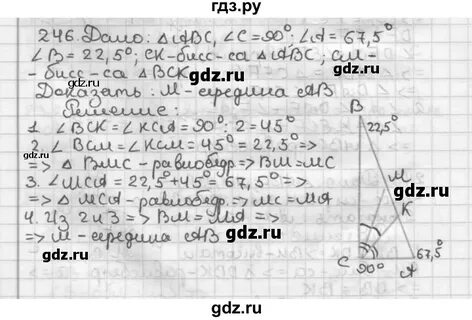 гдз.ру
246. Дано: △ABC, ∠C=90°; ∠A=67,5°
∠B=22,5°; CK-бисс-са △ABC; CM-
-бисс-са △BCK
gdz.ru
Доказать: M-середина AB
Решение:
1. ∠BCK=∠KCA=90°:2=45°
2. ∠BCM=∠KCM=45°=22,5°=>
=> △ BMC-равнобедр=>BM=MC
gdz.ru
3. ∠MCA=22,5°+45°=67,5°=>
=> △ MCA-равнобедр.=>MC=MA
4. Из 2 и 3 => BM=MA=>
=> M-середина AB
gdz.ru
B
22,5°
M
gdz.ru
K
C
90°
A
67,5°
gdz.ru
gdz.ru